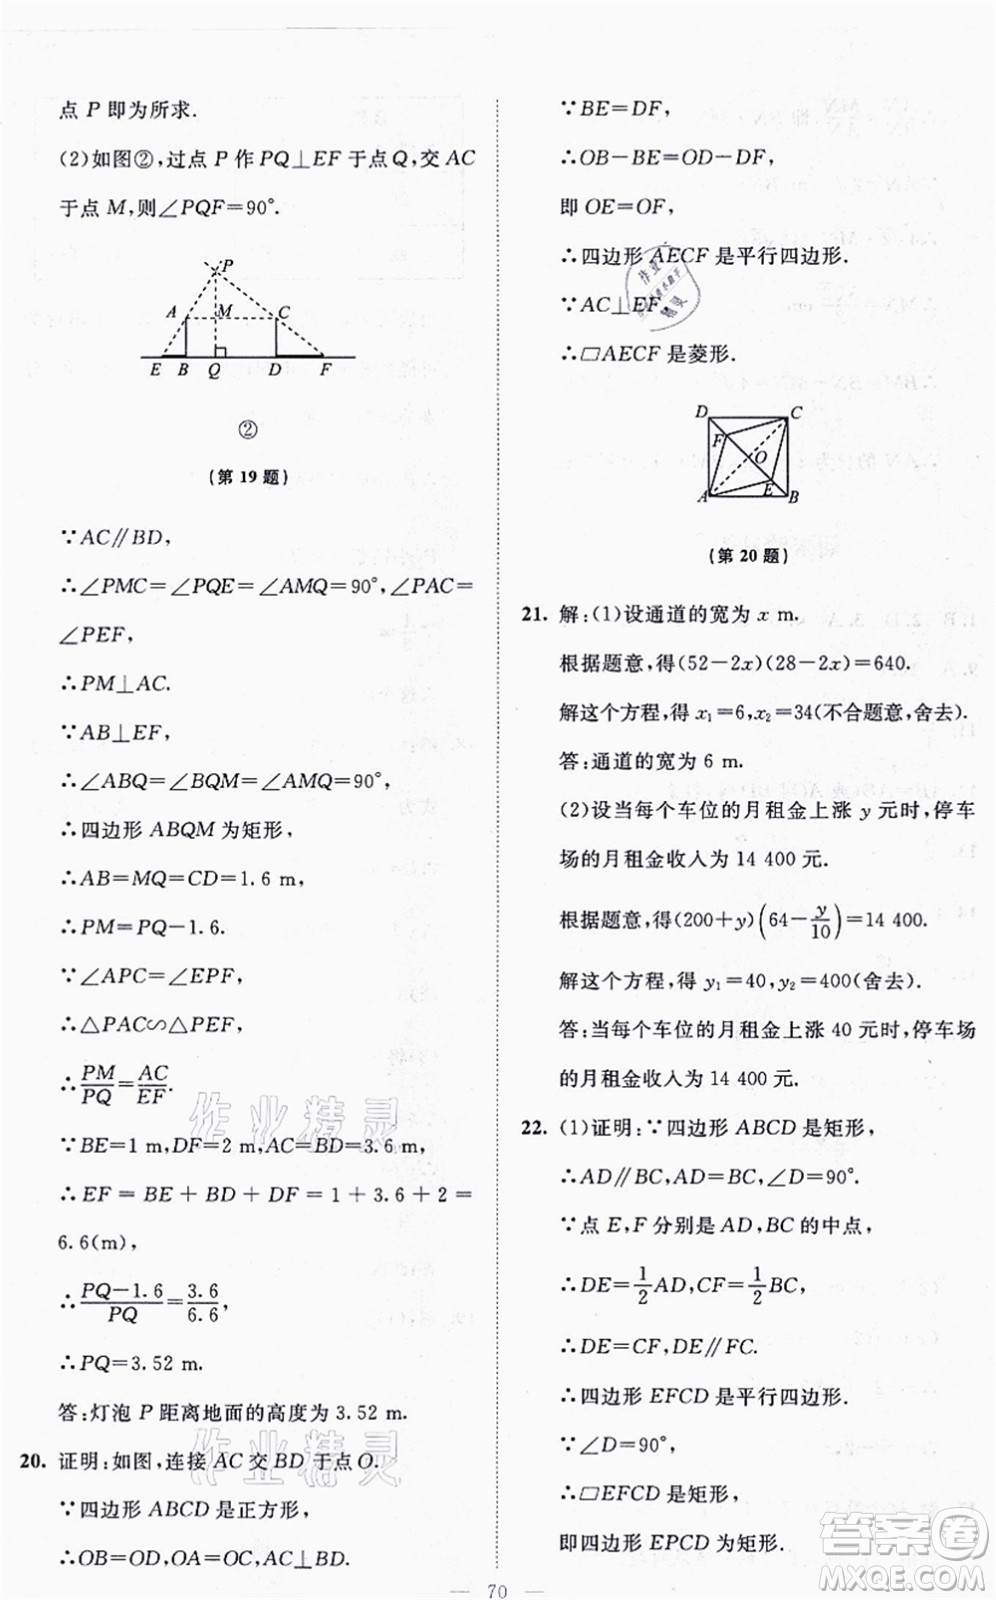 点 P 即为所求.
(2)如图②,过点 P 作 PQ⊥EF 于点 Q,交 AC
于点 M,则∠PQF=90°.
P
A M C
E B Q D F
②
(第 19 题)
∵AC∥BD,
∴∠PMC=∠PQE=∠AMQ=90°,∠PAC=
∠PEF,
∴PM⊥AC.
∵AB⊥EF,
∴∠ABQ=∠BQM=∠AMQ=90°,
∴四边形 ABQM 为矩形,
∴AB=MQ=CD=1.6 m,
∴PM=PQ-1.6.
∵∠APC=∠EPF,
∴△PAC∽△PEF,
∴PM/PQ=AC/EF.
∵BE=1 m,DF=2 m,AC=BD=3.6 m,
∴EF=BE+BD+DF=1+3.6+2=
6.6(m),
∴(PQ-1.6)/PQ=3.6/6.6,
∴PQ=3.52 m.
答:灯泡 P 距离地面的高度为 3.52 m.
20. 证明:如图,连接 AC 交 BD 于点 O.
∵四边形 ABCD 是正方形,
∴OB=OD,OA=OC,AC⊥BD.
∵BE=DF,
∴OB-BE=OD-DF,
即 OE=OF,
∴四边形 AECF 是平行四边形.
∵AC⊥EF,
∴▱AECF 是菱形.
D C
F
O
E
A B
(第 20 题)
21. 解:(1)设通道的宽为 x m.
根据题意,得(52-2x)(28-2x)=640.
解这个方程,得 x₁=6,x₂=34(不合题意,舍去).
答:通道的宽为 6 m.
(2)设当每个车位的月租金上涨 y 元时,停车
场的月租金收入为 14 400 元.
根据题意,得(200+y)(64-y/10)=14 400.
解这个方程,得 y₁=40,y₂=400(舍去).
答:当每个车位的月租金上涨 40 元时,停车场
的月租金收入为 14 400 元.
22. (1)证明:∵四边形 ABCD 是矩形,
∴AD∥BC,∠D=90°.
∵点 E,F 分别是 AD,BC 的中点,
∴DE=1/2AD,CF=1/2BC,
∴DE=CF,DE∥FC.
∴四边形 EFCD 是平行四边形.
∵∠D=90°,
∴▱EFCD 是矩形,
即四边形 EPCD 为矩形.
— 70 —
作业精灵
作业精灵
答案圈
MXQE.COM